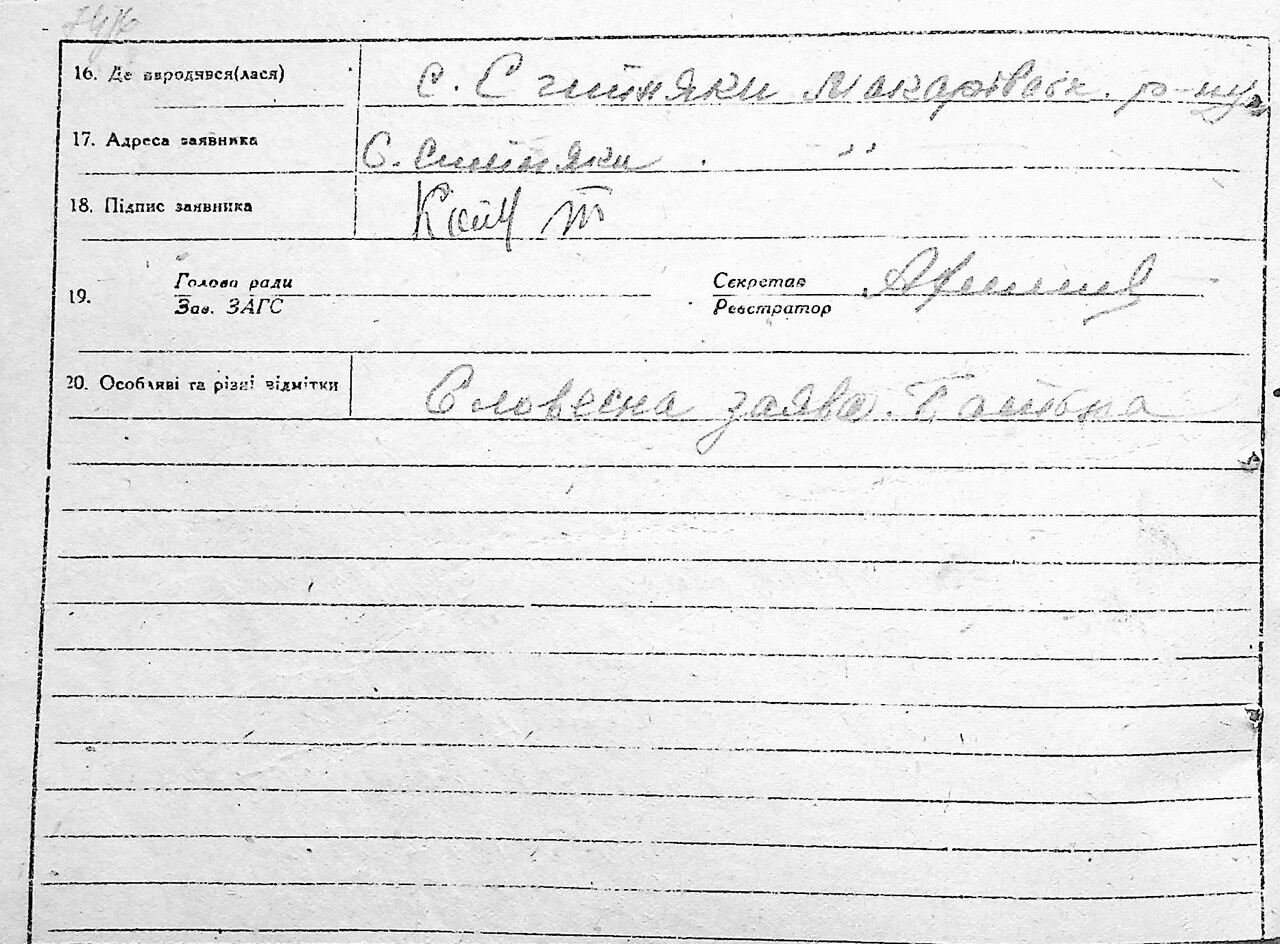 16. Де народився(лася) с. Ситняки Макарівськ. р-ну
17. Адреса заявника с. Ситняки . "
18. Підпис заявника
Голова ради Секретар
19.
Зав. ЗАГС Реєстратор
20. Особливі та різні відмітки Словесна заява. Батька